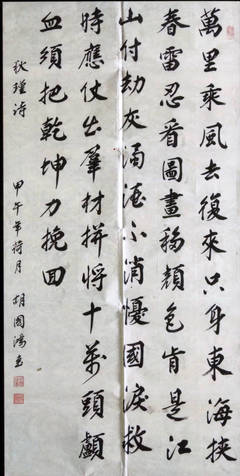 萬里乘風去復來只身東海挾
春雷忍看圖畫移顏色肯是江
山付劫灰濁酒不消憂國淚救
時應仗出羣材拼將十萬頭顱
血須把乾坤力挽回
秋瑾詩 甲午年荷月 胡國